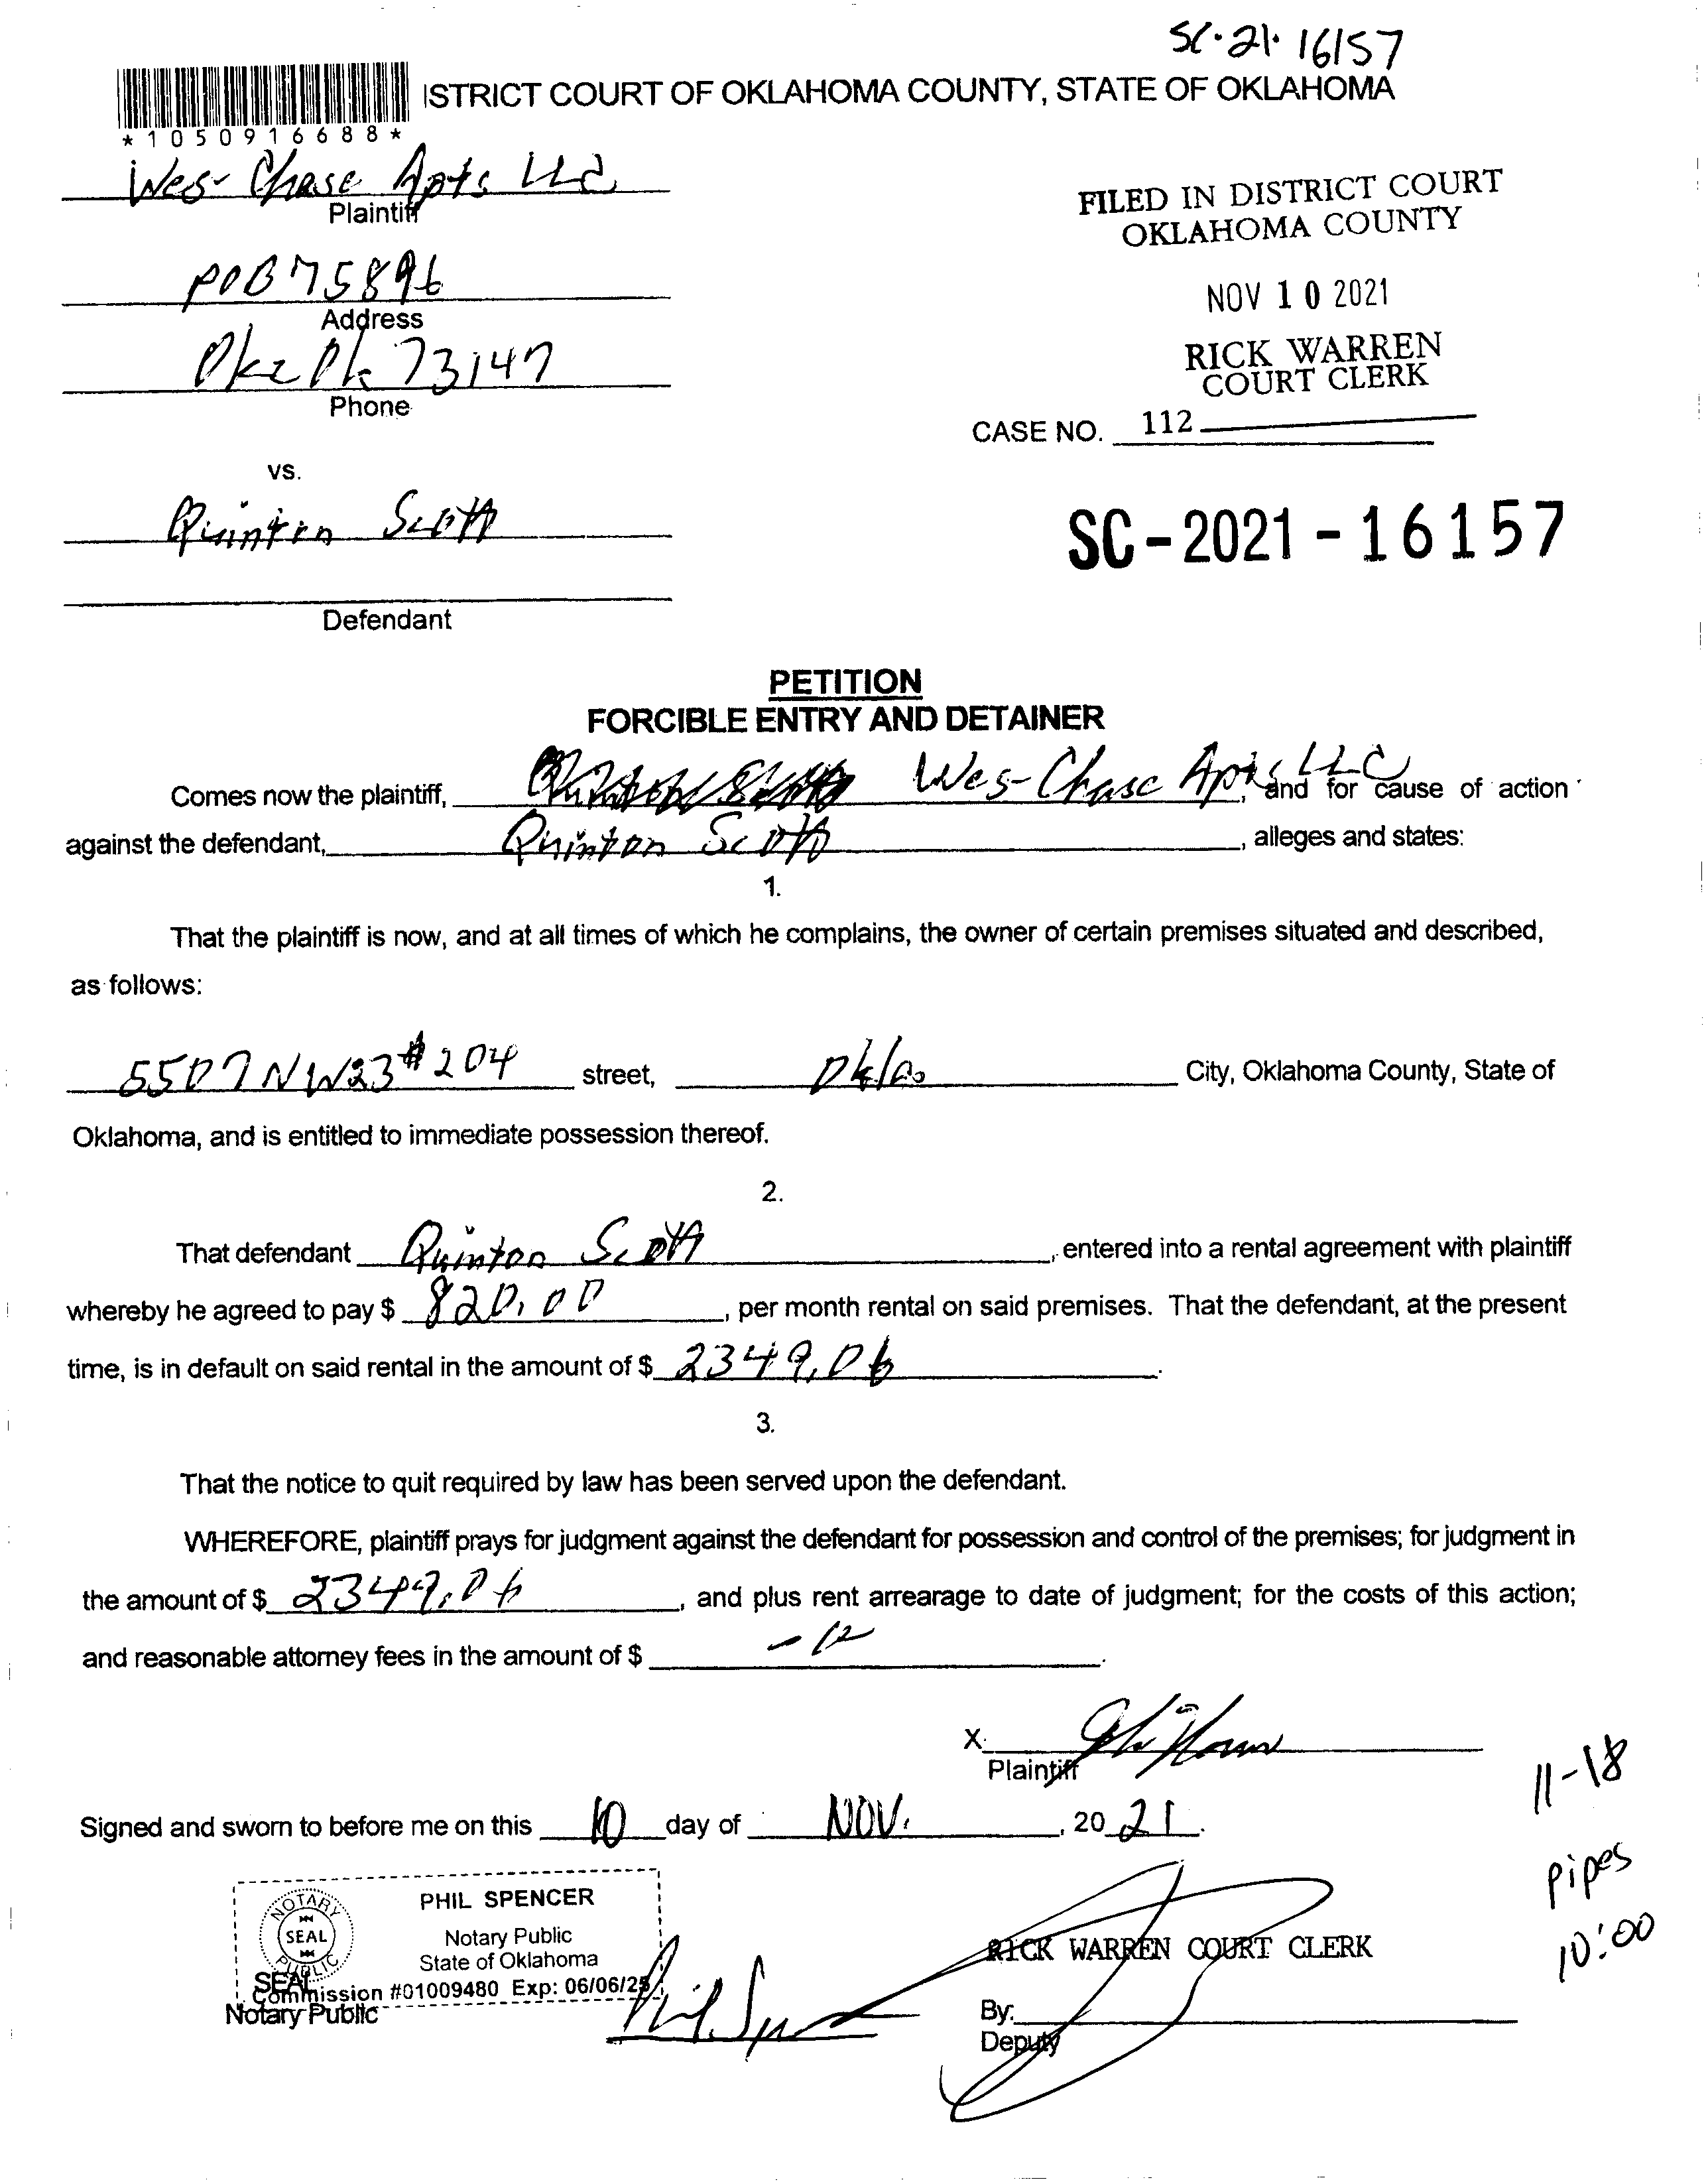 SC-21-16157
ISTRICT COURT OF OKLAHOMA COUNTY, STATE OF OKLAHOMA
*1050916688*
Wes-Chase Apts LLC
Plaintiff
FILED IN DISTRICT COURT
OKLAHOMA COUNTY
POB 75896
Address
NOV 10 2021
Okc Ok 73147
Phone
RICK WARREN
COURT CLERK
CASE NO. 112
vs.
Quinton Scott
SC-2021-16157
Defendant
PETITION
FORCIBLE ENTRY AND DETAINER
Comes now the plaintiff, Wes-Chase Apts LLC, and for cause of action
against the defendant, Quinton Scott, alleges and states:
1.
That the plaintiff is now, and at all times of which he complains, the owner of certain premises situated and described,
as follows:
5507 NW 23 #204 street, Okla City, Oklahoma County, State of
Oklahoma, and is entitled to immediate possession thereof.
2.
That defendant Quinton Scott, entered into a rental agreement with plaintiff
whereby he agreed to pay $ 820.00, per month rental on said premises. That the defendant, at the present
time, is in default on said rental in the amount of $ 2349.06.
3.
That the notice to quit required by law has been served upon the defendant.
WHEREFORE, plaintiff prays for judgment against the defendant for possession and control of the premises; for judgment in
the amount of $ 2349.06, and plus rent arrearage to date of judgment; for the costs of this action;
and reasonable attorney fees in the amount of $
X
Plaintiff
11-18
Signed and sworn to before me on this 10 day of NOV., 2021.
pipes
10:00
NOTARY
SEAL
PUBLIC
PHIL SPENCER
Notary Public
State of Oklahoma
SEAL
Commission #01009480 Exp: 06/06/25
Notary Public
Phil Spencer
RICK WARREN COURT CLERK
By:
Deputy